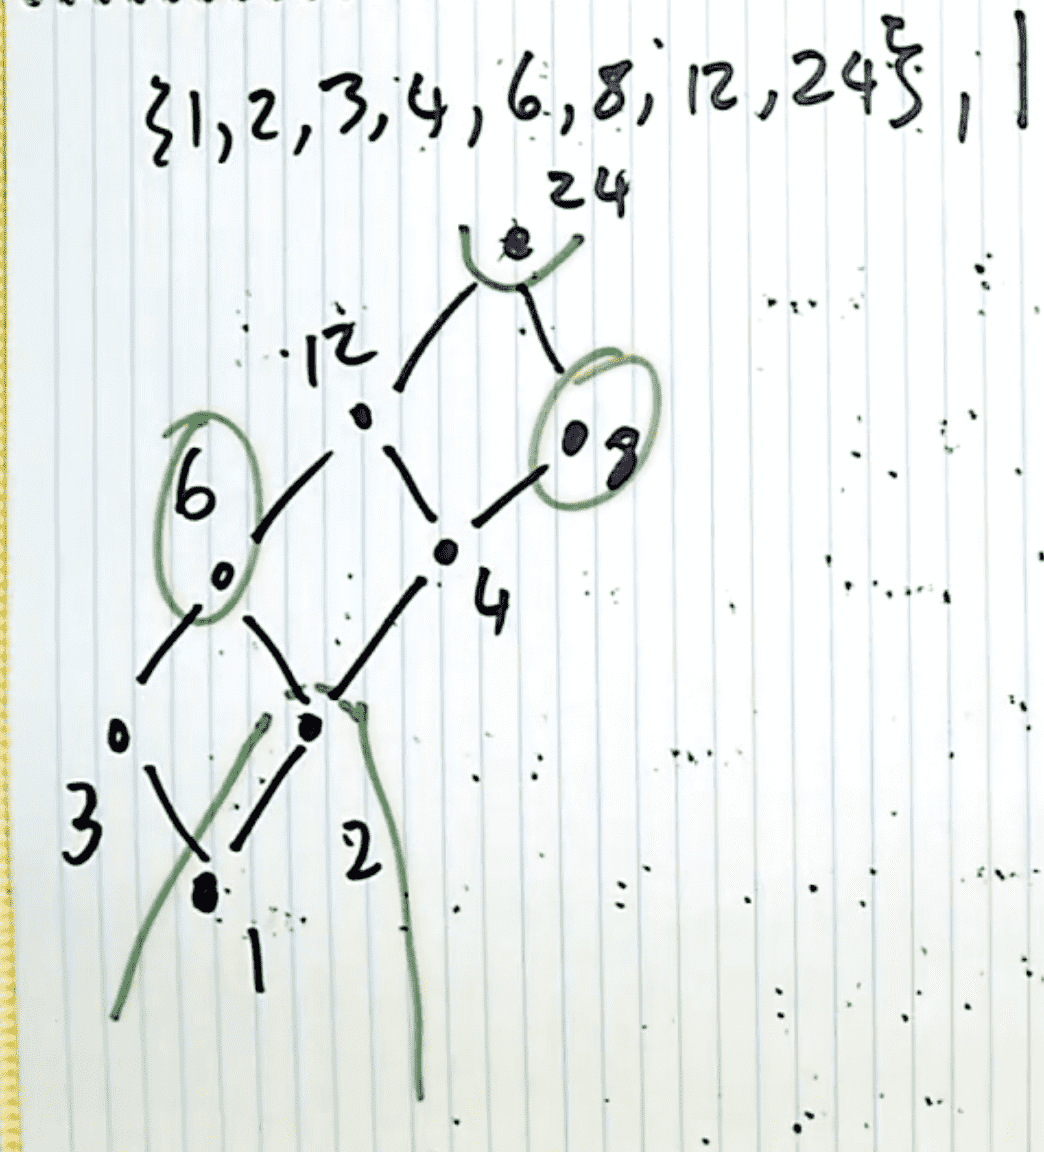 {1, 2, 3, 4, 6, 8, 12, 24}, |
24
12
6
8
4
3
2
1